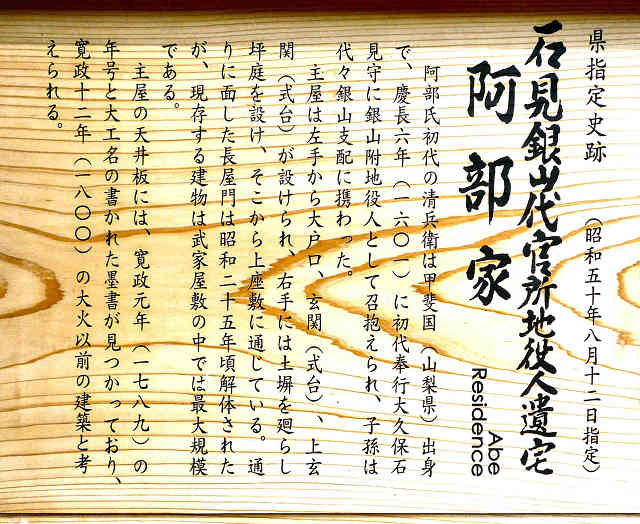 県指定史跡 （昭和五十年八月十二日指定）
石見銀山代官所地役人遺宅
阿部家
Abe
Residence
阿部氏初代の清兵衛は甲斐国（山梨県）出身
で、慶長六年（一六〇一）に初代奉行大久保石
見守に銀山附地役人として召抱えられ、子孫は
代々銀山支配に携わった。
主屋は左手から大戸口、玄関（式台）、上玄
関（式台）が設けられ、右手には土塀を廻らし
坪庭を設け、そこから上座敷に通じている。通
りに面した長屋門は昭和二十五年頃解体された
が、現存する建物は武家屋敷の中では最大規模
である。
主屋の天井板には、寛政元年（一七八九）の
年号と大工名の書かれた墨書が見つかっており、
寛政十二年（一八〇〇）の大火以前の建築と考
えられる。